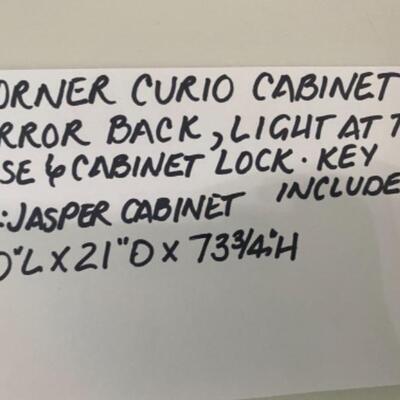 ORNER CURIO CABINET
RROR BACK, LIGHT AT T
SE & CABINET LOCK. KEY
: JASPER CABINET INCLUDE
0"L X 21"D X 73¾"H